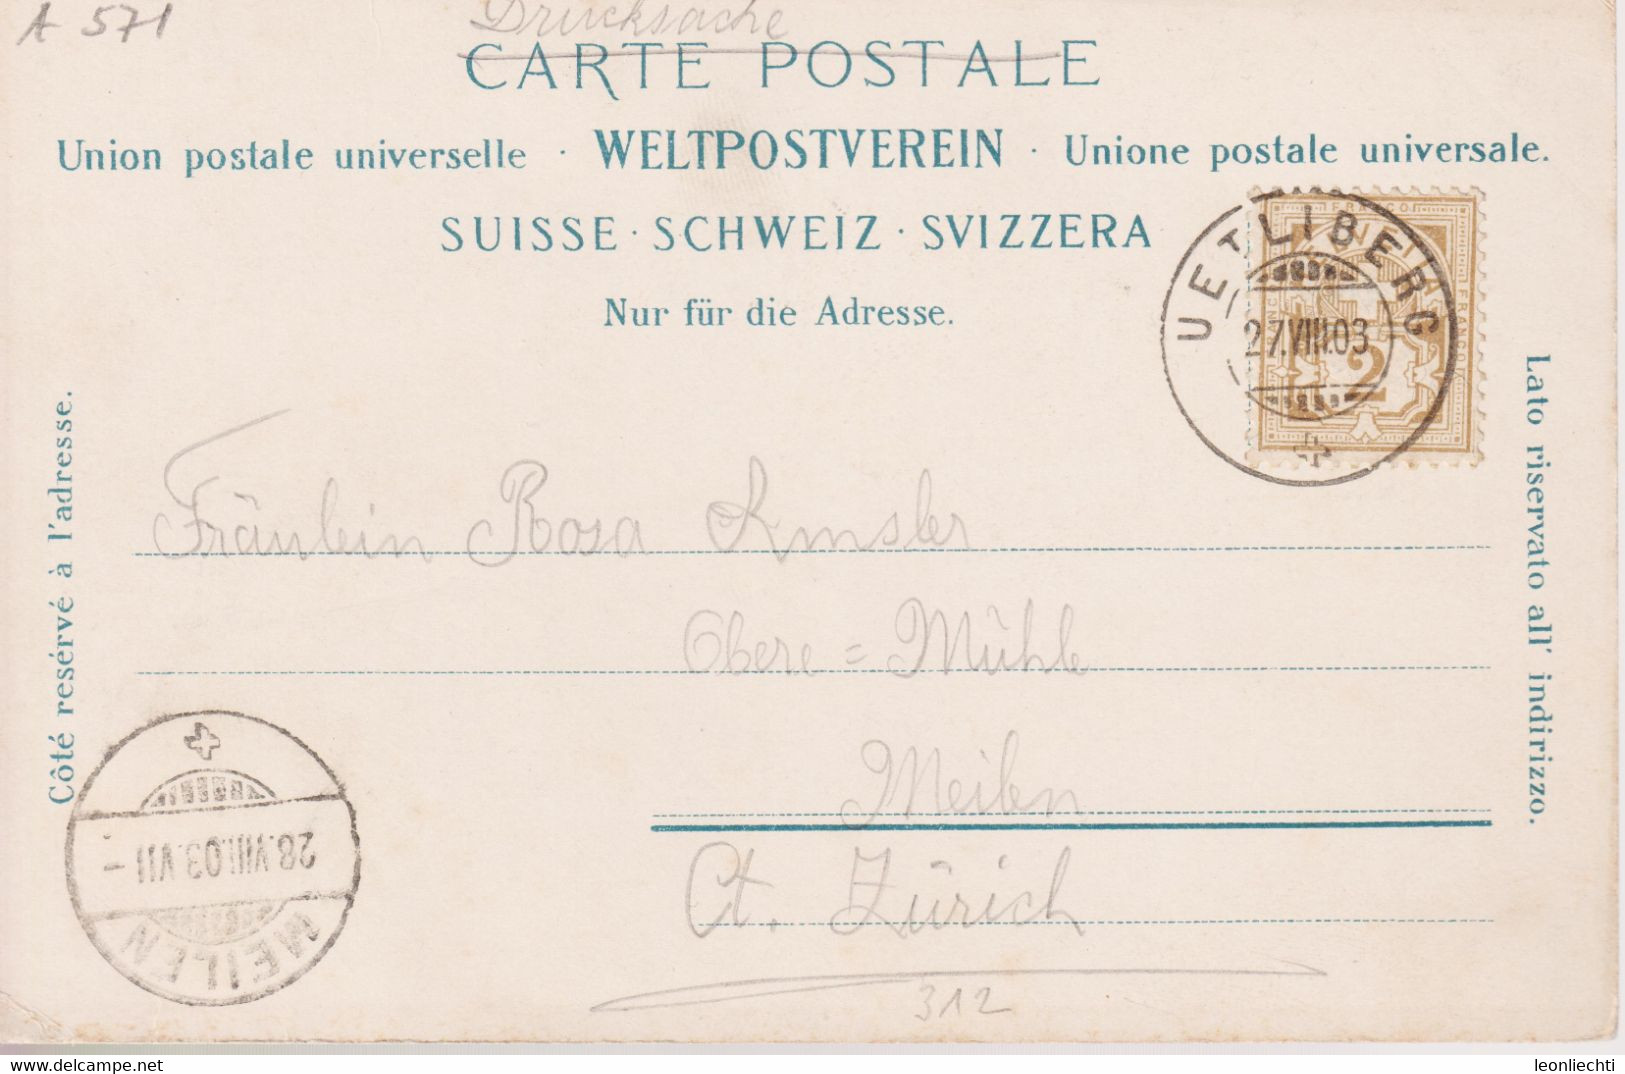 A 571
Drucksache
CARTE POSTALE
Union postale universelle · WELTPOSTVEREIN · Unione postale universale.
SUISSE · SCHWEIZ · SVIZZERA
Nur für die Adresse.
UETLIBERG
27.VIII.03
FRANCO
FRANCO
2
Côté resérvé à l'adresse.
Lato riservato all' indirizzo.
Fräulein Rosa Amsler
Obere = Mühle
Meilen
Ct. Zürich
312
28.VIII.03.VII -
MEILEN
hippostcard.com
leonliechti